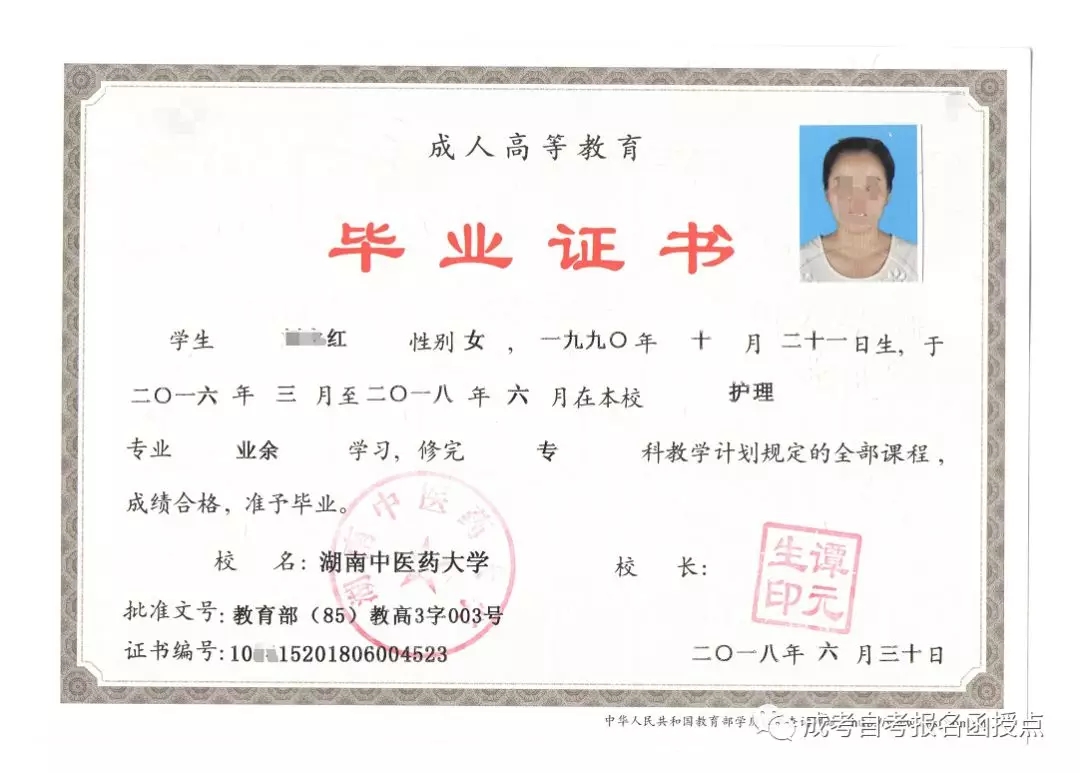 成人高等教育
毕业证书
学生 红 性别 女 ，一九九〇年 十 月 二十一日生，于
二〇一六 年 三 月至 二〇一八 年 六 月在本校 护理
专业 业余 学习，修完 专 科教学计划规定的全部课程，
成绩合格，准予毕业。
校 名：湖南中医药大学
校 长：
谭元生印
批准文号：教育部（85）教高3字003号
证书编号：10 15201806004523
二〇一八年 六 月三十日
湖南中医药大学
中华人民共和国教育部学
成考自考报名函授点